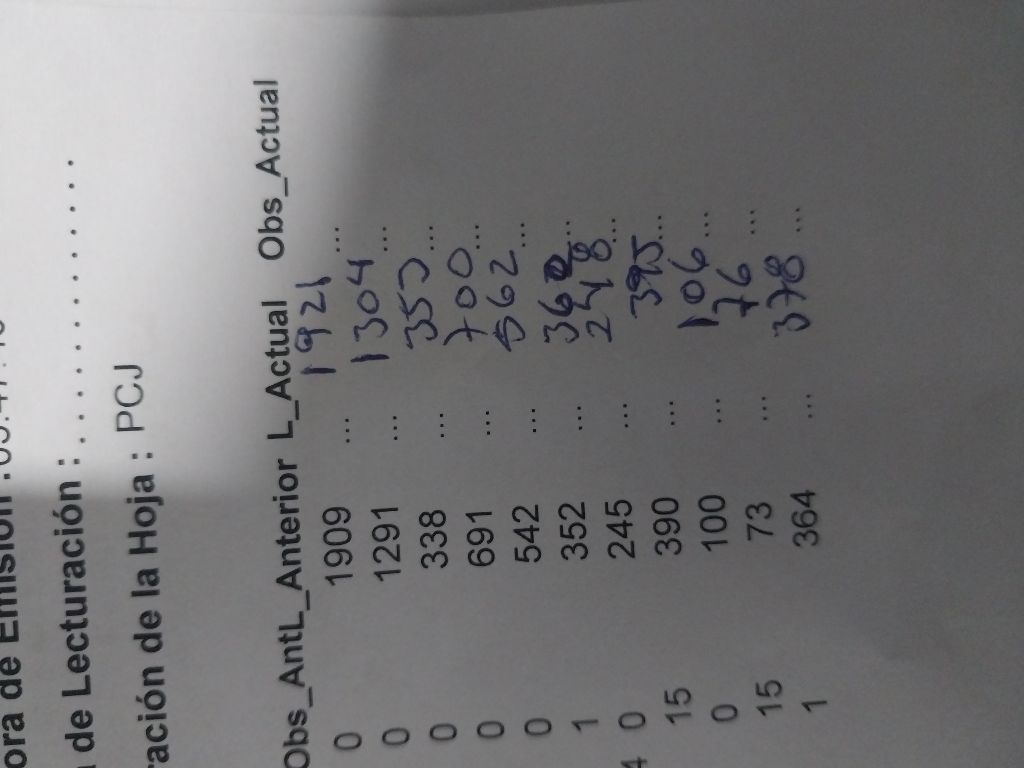 ora de Emisión :
de Lecturación : . . . . . . . . . . . . . . . .
ración de la Hoja : PCJ
Obs_AntL_Anterior L_Actual Obs_Actual
0 1909 ... 1921 ...
0 1291 ... 1304 ...
0 338 ... 355 ...
0 691 ... 700 ...
0 542 ... 562 ...
1 352 ... 360 ...
4 0 245 ... 248 ...
15 390 ... 395 ...
0 100 ... 106 ...
15 73 ... 76 ...
1 364 ... 378 ...